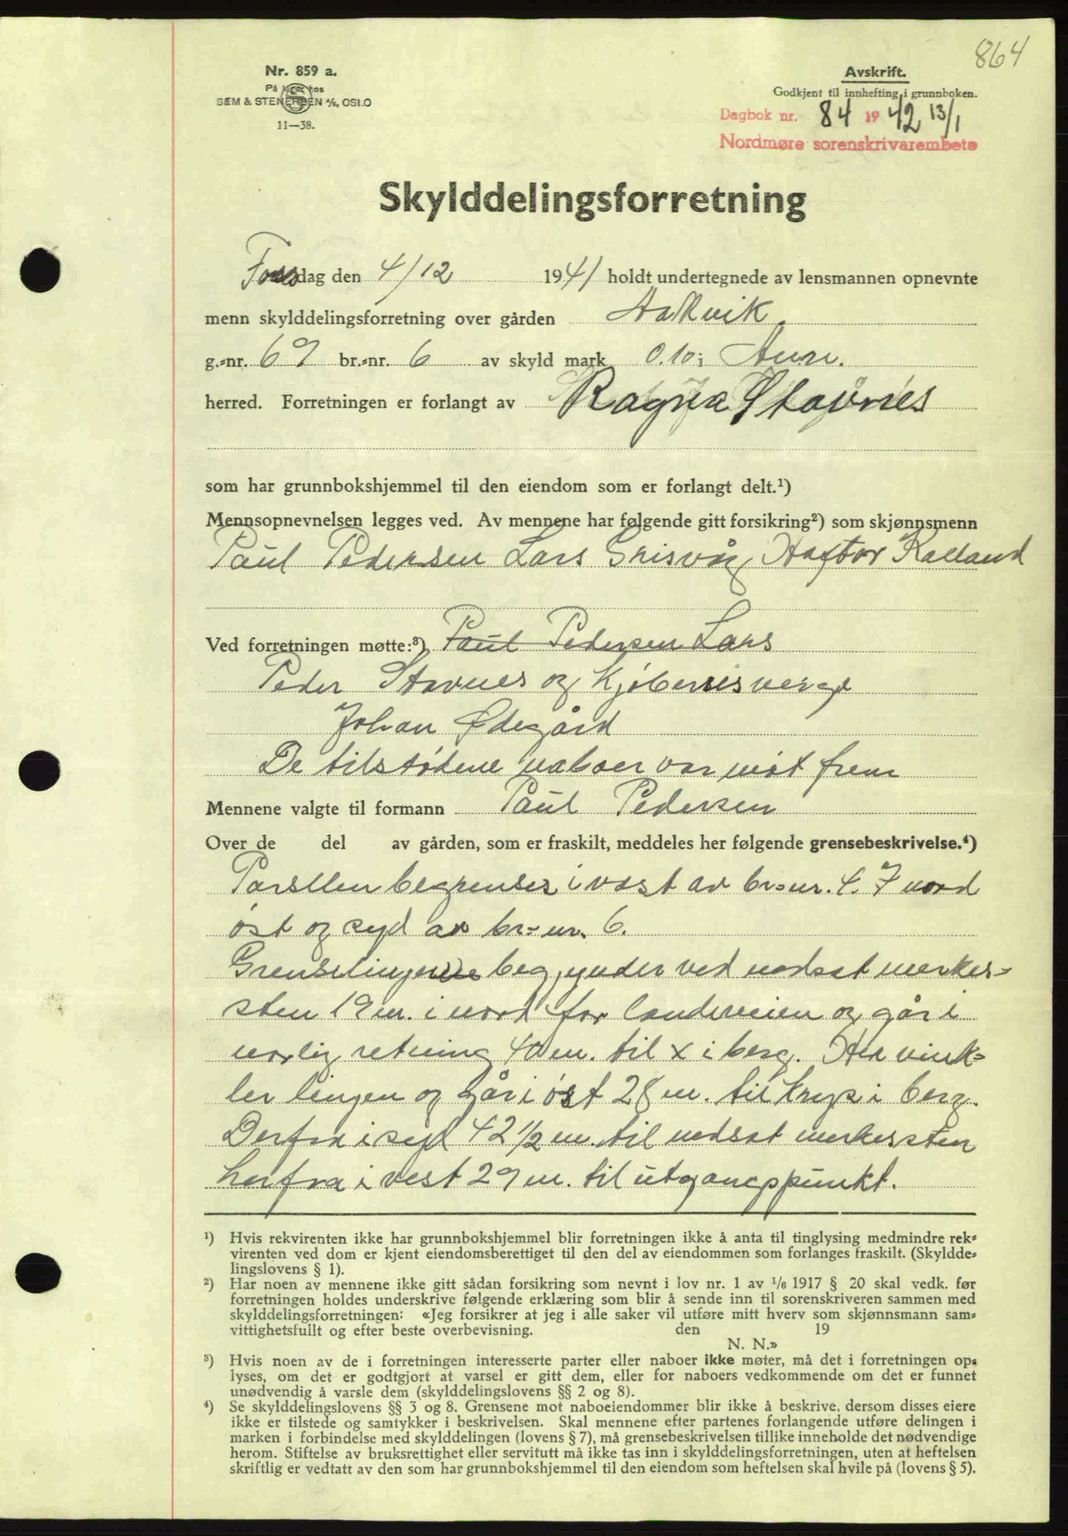 864
Nr. 859 a.
På lager hos
SEM & STENERSEN A/S, OSLO
11—38.
Avskrift.
Godkjent til innhefting i grunnboken.
Dagbok nr. 84 1942 13/1
Nordmøre sorenskrivarembete
Skylddelingsforretning
dag den 4/12 1941 holdt undertegnede av lensmannen opnevnte
menn skylddelingsforretning over gården
g.-nr. 69 br.-nr. 6 av skyld mark 0.10 i Aure.
herred. Forretningen er forlangt av Ragna Stavnes
som har grunnbokshjemmel til den eiendom som er forlangt delt.¹)
Mennsopnevnelsen legges ved. Av mennene har følgende gitt forsikring²) som skjønnsmenn
Paul Pedersen Lars Grisvåg, Haftor Kalland
Ved forretningen møtte:³) Paul Pedersen Lars
Peder Stavnes og Kjøberens verge
Johan Ødegård
De tilstødene naboer var møt frem
Mennene valgte til formann Paul Pedersen
Over de del av gården, som er fraskilt, meddeles her følgende grensebeskrivelse.⁴)
Parsllen begrenses i vest av br.-nr. 4. 7 nord
øst og syd av br.-nr. 6.
Grenselinjen begynder ved nedsat merkes-
sten 19 m. i nord for landeveien og går i
norlig retning 40 m. til x i berg. Her vink-
ler linjen og går i øst 28 m. til kryss i berg.
Derfra i syd 42 1/2 m. til nedsat merkessten
herfra i vest 29 m. til utgangspunkt.
¹) Hvis rekvirenten ikke har grunnbokshjemmel blir forretningen ikke å anta til tinglysing medmindre rek-
virenten ved dom er kjent eiendomsberettiget til den del av eiendommen som forlanges fraskilt. (Skyldde-
lingslovens § 1).
²) Har noen av mennene ikke gitt sådan forsikring som nevnt i lov nr. 1 av 1/6 1917 § 20 skal vedk. før
forretningen holdes underskrive følgende erklæring som blir å sende inn til sorenskriveren sammen med
skylddelingsforretningen: «Jeg forsikrer at jeg i alle saker vil utføre mitt hverv som skjønnsmann sam-
vittighetsfullt og efter beste overbevisning. den 19
N. N.»
³) Hvis noen av de i forretningen interesserte parter eller naboer ikke møter, må det i forretningen op-
lyses, om det er godtgjort at varsel er gitt dem, eller for naboers vedkommende om det er funnet
unødvendig å varsle dem (skylddelingslovens §§ 2 og 8).
⁴) Se skylddelingslovens §§ 3 og 8. Grensene mot naboeiendommer blir ikke å beskrive, dersom disses eiere
ikke er tilstede og samtykker i beskrivelsen. Skal mennene efter partenes forlangende utføre delingen i
marken i forbindelse med skylddelingen (lovens § 7), må grensebeskrivelsen tillike inneholde det nødvendige
herom. Stiftelse av bruksrettighet eller servitutt må ikke tas inn i skylddelingsforretningen, uten at heftelsen
skriftlig er vedtatt av den som har grunnbokshjemmel til den eiendom som heftelsen skal hvile på (lovens § 5).